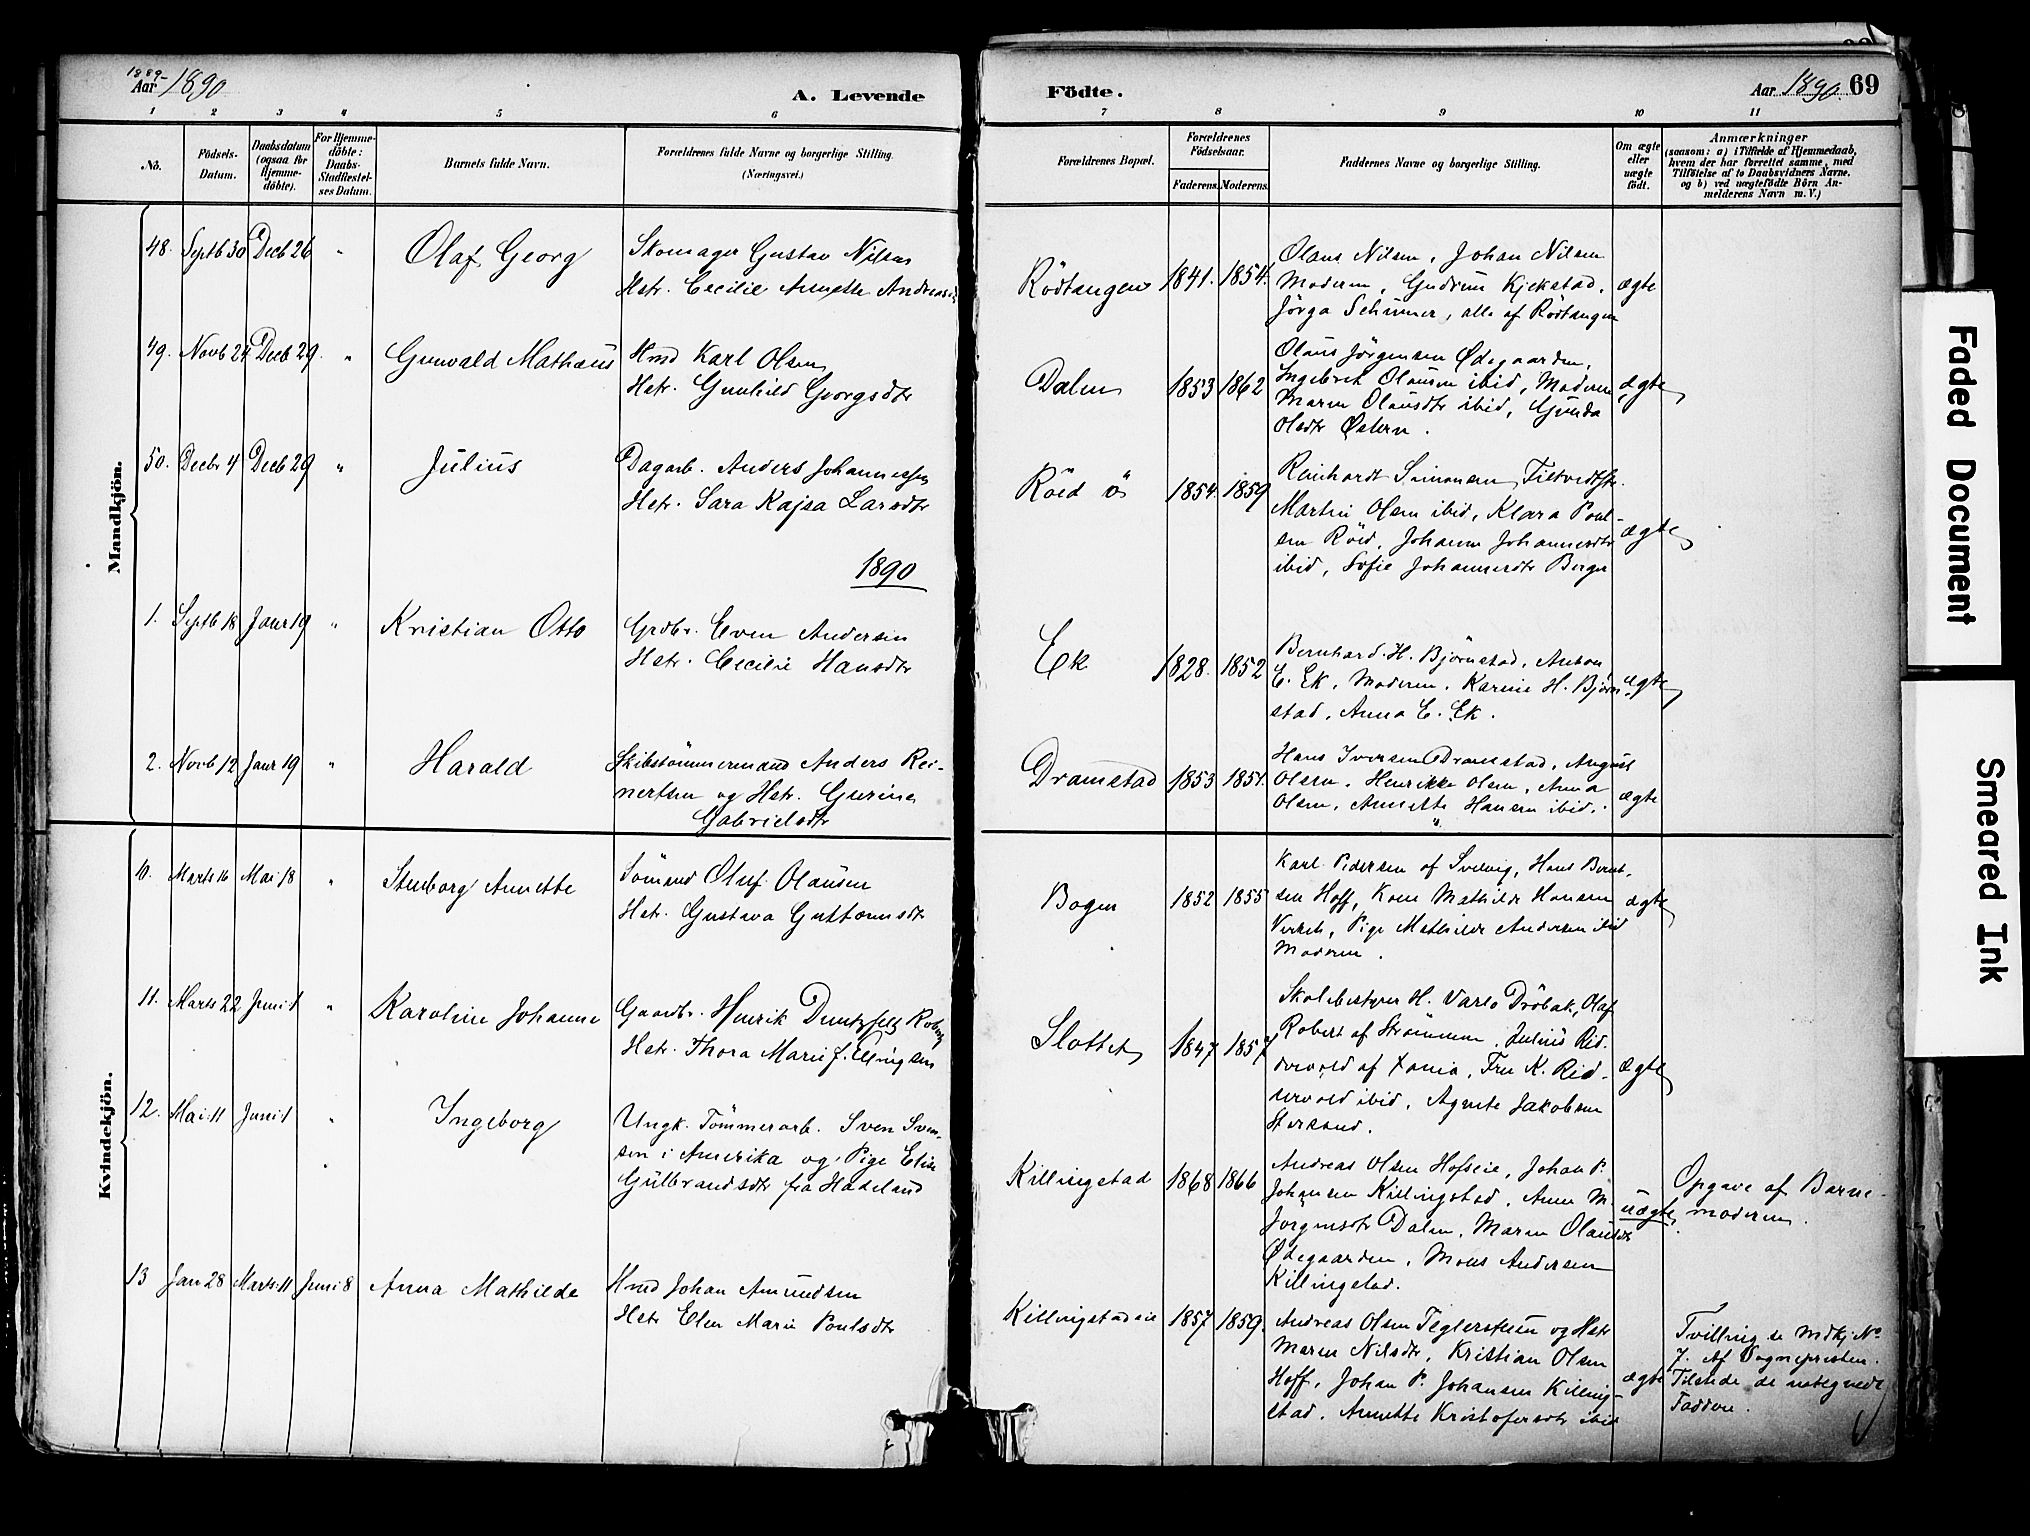 1889-
Aar 1890
A. Levende
Födte.
Aar 1890. 69
1 2 3 4 5 6 7 8 9 10 11
No.
Födsels-
Datum.
Daabsdatum
(ogsaa for
Hjemme-
döbte).
For Hjemme-
döbte:
Daabs-
Stadfæstel-
ses Datum.
Barnets fulde Navn.
Forældrenes fulde Navne og borgerlige Stilling.
(Næringsvei.)
Forældrenes Bopæl.
Forældrenes
Födselsaar.
Faderens. Moderens.
Faddernes Navne og borgerlige Stilling.
Om ægte
eller
uægte
födt.
Anmærkninger
(saasom: a) i Tilfælde af Hjemmedaab,
hvem der har forrettet samme, med
Tilföielse af to Daabsvidners Navne,
og b) ved uægtefödte Börn An-
melderens Navn m. V.)
Mandkjön.
48. Septb 30 Decb 26 " Olaf Georg
Skomager Gustav Nilsen
Hstr. Cecilie Annette Andreasd
Rödtangen 1841. 1854.
Olaus Nilsen, Johan Nilsen
Moderen, Gudrun Kjekstad,
Jörga Schumer, alle af Rödtangen
ægte
49. Novb 24 Decb 29. " Gunvald Mathæus
Hmd Karl Olsen
Hstr. Gunhild Georgsdtr
Dalen 1853 1862
Olaus Jörgensen Ødegaarden,
Ingebret Olausen ibid, Moderen
Maren Olausdtr ibid, Gunda
Olsdtr Østern.
ægte
50. Decbr 4 Decb 29 " Julius
Dagarb. Anders Johannessen
Hstr. Sara Kajsa Larsdtr
Röed ö 1854. 1859
Reinhardt Simonsen Tiltvedt
Martin Olsen ibid, Klara Poul-
sen Röed, Johanne Johannesdtr
ibid, Sofie Johannesdtr Berger
ægte
1890
1. Septb 18 Janr 19 " Kristian Otto
Grdbr. Even Andersen
Hstr. Cecilie Hansdtr
Ek 1828. 1852
Bernhard H. Björnstad, Anton
E. Ek, Moderen, Karine H. Björn-
stad, Anna E. Ek.
ægte
2. Novb 12 Janr 19 " Harald
Skibstömmermand Anders Rei-
nertsen og Hstr. Gurine
Gabrielsdtr
Dramstad 1853 1851.
Hans Iversen Dramstad, August
Olsen, Henrikke Olsen, Anna
Olsen, Annette Hansen ibid.
ægte
Kvindekjön.
10. Marts 16 Mai 18 " Stenborg Annette
Sömand Oluf Olausen
Hstr. Gustava Guttormsdtr
Bogen 1852 1855
Karl Pedersen af Svelvig, Hans Bernt-
sen Hoff, Kone Mathilde Hansen
Verket, Pige Mathilde Andersen ibid
Moderen.
ægte
11. Marts 22 Juni 1 " Karoline Johanne
Gaardbr. Henrik Duntzfelt Robert
Hstr. Thora Marie J. Ellingsen
Slottet 1847 1857
Skolebestyrer H. Varlo Dröbak, Olaf
Robert af Strömmen, Julius Rid-
dervold af Xania, Fru K. Rid-
dervold ibid, Agnete Jakobsen
Stersand.
ægte
12. Mai 11 Juni 1 " Ingeborg
Ungk. Tömmerarb. Sven Sven-
sen i Amerika og Pige Elise
Gulbrandsdtr fra Hadeland
Killingstad 1868 1866
Andreas Olsen Hofseie, Johan P.
Johansen Killingstad, Anne M.
Jörgensdtr Dalen, Maren Olausdtr
Ødegaarden, Mons Andersen
Killingstad.
uægte
Opgave af Barne-
moderen.
13 Jan 28 Marts 11 Juni 8 Anna Mathilde
Hmd Johan Amundsen
Hstr Elen Marie Poulsdtr
Killingstadeie 1857 1859.
Andreas Olsen Teglersteen og Hstr
Maren Nilsdtr, Kristian Olsen
Hoff, Johan P. Johansen Killing-
stad, Annette Kristofersdtr ibid
ægte
Tvilling se Mdkj No
7. Af Sognepresten.
Tilstede de nævnte
Faddere.
Faded Document
Smeared Ink